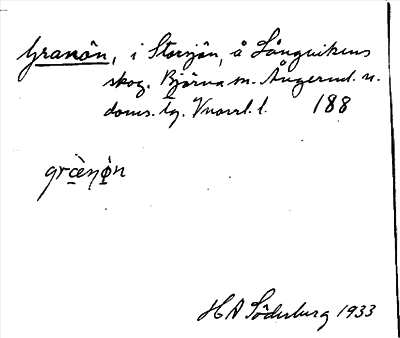 Granön, i Storsjön, å Långvikens
skog. Björna sn. Ångerml. n.
doms. lg. Vnorrl. l. 188
græ̀nǫ̀n
H A Söderberg 1933